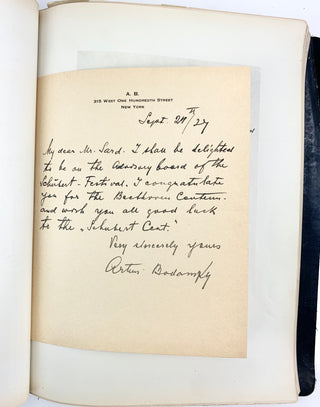 A. B.
315 WEST ONE HUNDREDTH STREET
NEW YORK
Sept. 24th/27
My dear Mr. Sard. I shall be delighted
to be on the Advisory board of the
Schubert-Festival. I congratulate
you for the Beethoven Centenn.
and wish you all good luck
to the „Schubert Cent."
Very sincerely yours
Artur Bodanzky